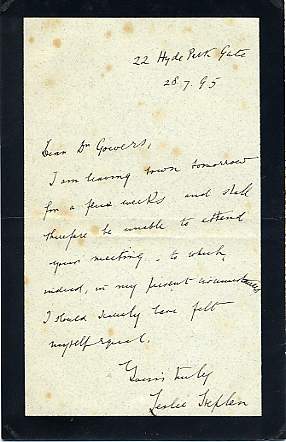 22 Hyde Park Gate
28. 7. 95
Dear Dr Gowers,
I am leaving town tomorrow
for a few weeks and shall
therefore be unable to attend
your meeting - to which
indeed, in my present circumstances
I should scarcely have felt
myself equal.
Yours truly
Leslie Stephen